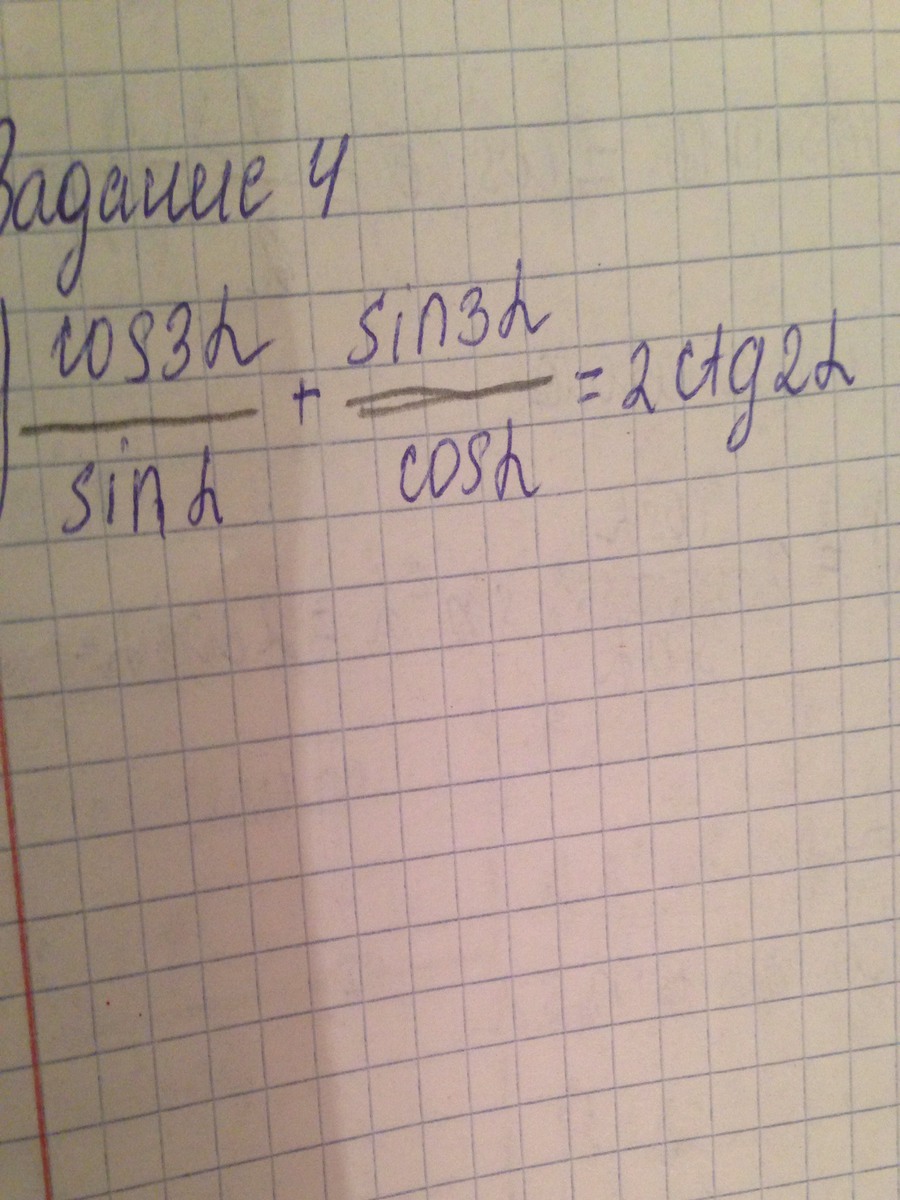 Задание 4
) cos3α/sinα + sin3α/cosα = 2ctg2α